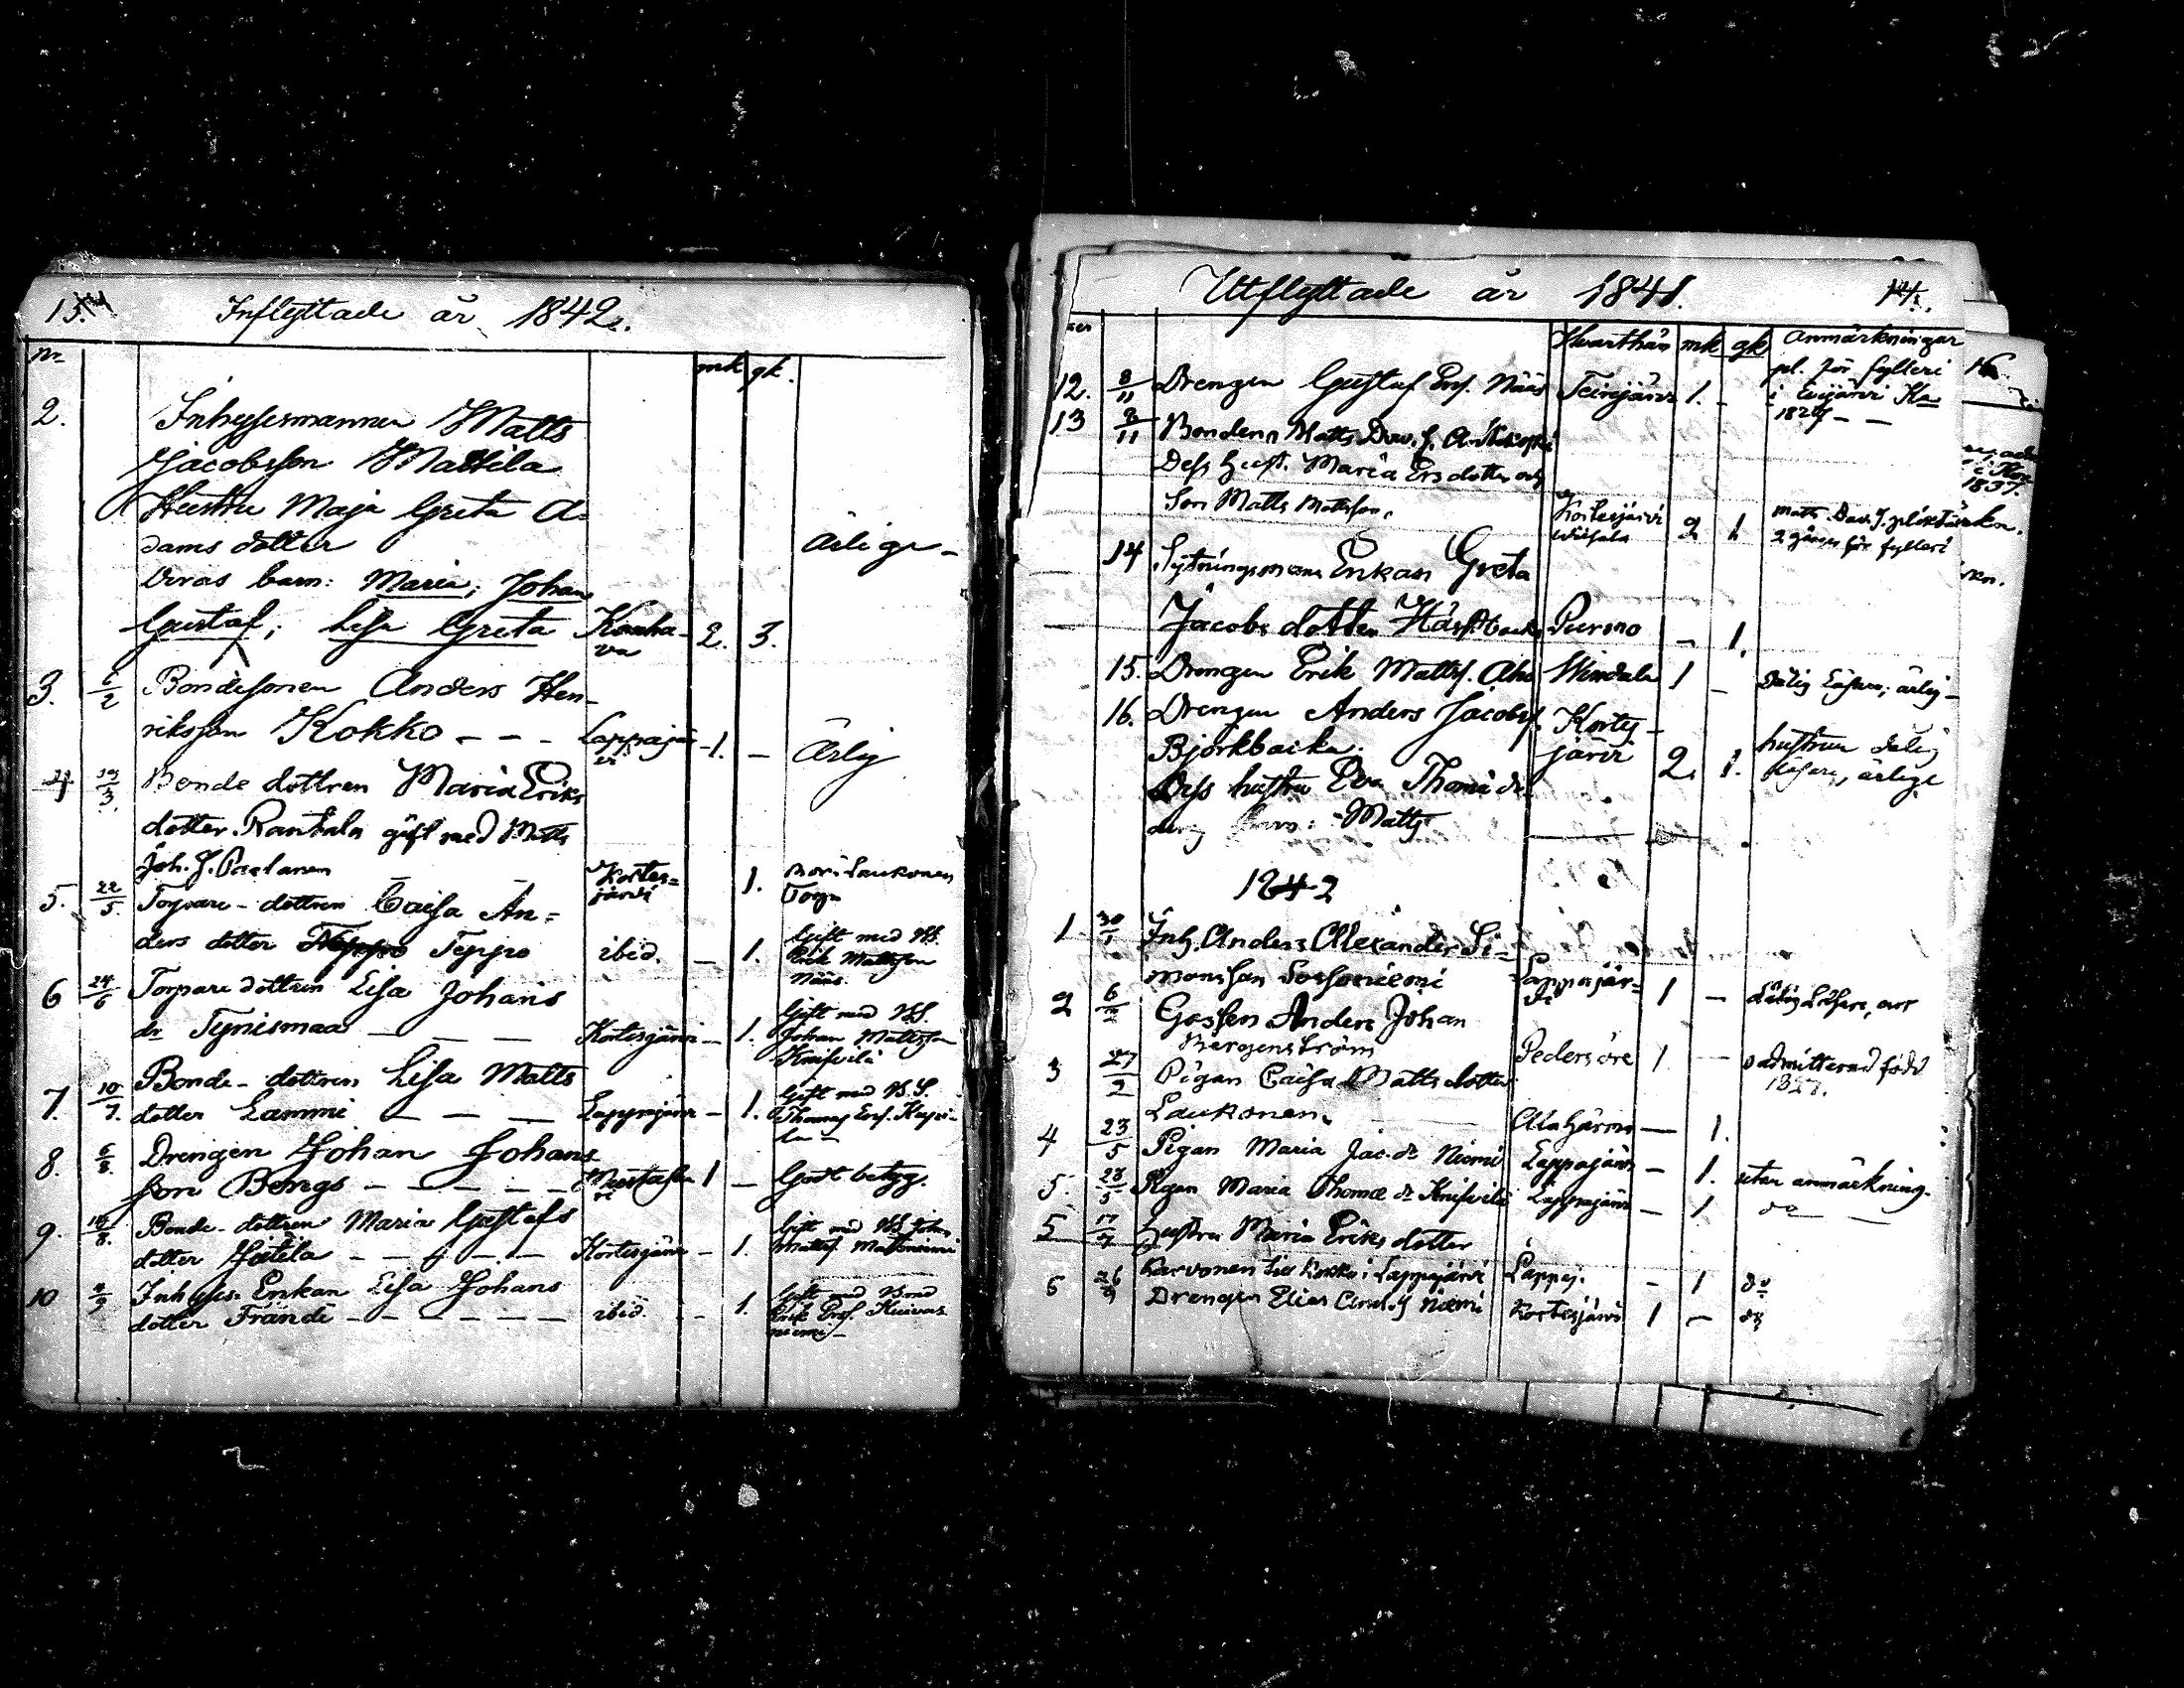 15. Inflyttade år 1842.
Nr mk gk.
2. Inhysesmannen Matts
Jacobsson Mattila
Hustru Maja Greta A-
dams dotter Ärlige -
deras barn: Maria; Johan
Gustaf; Lisa Greta Kauha-
va 2. 3.
3. 6/2 Bondesonen Anders Hen-
riksson Kokko - - - Lappajär-
vi 1. - Ärlig
4 13/3. Bonde dottren Maria Eriks
dotter Rantala gift med Matts
Joh. S. Paalanen Kortes=
järvi 1.
5. 22/5. Torpare-dottren Caisa An=
ders dotter Teppo ibid. - 1. Gift med BS.
Erik Mattsson
Nääs.
6 24/6 Torpare dottren Lisa Johans
dr Tynismaa - - - Kortesjärvi - 1. Gift med BS.
Johan Mattsson
Knifsilä
7. 10/7. Bonde-dottren Lisa Matts
dotter Lammi - - - Lappajärvi - 1. Gift med B.S.
Thomas
8. 6/8. Drengen Johan Johans
son Bengs - - - - - 1 - Godt betyg.
9. Bonde-dottren Maria Gustafs
dotter Hietila - - - - - Kortesjärvi - 1. Gift med BS. Johan
Mattss. Mattniemi
10 Inhyses Enkan Lisa Johans
dotter Frände - - - - - - ibid. - - 1. Gift med Bond
Erik
niemi -
Utflyttade år 1841. 14.
Hvarthän mk gk Anmärkningar
12. 8/11 Drengen Gustaf Ers. Nääs Terijärvi 1. - pl. för fylleri
i Evijärvi
13 8/11 Bonden Matts Dav. S.
Dess Hust. Maria Ersdotter och
Son Matts Mattsson. Kortesjärvi
2 1 Matts Dav. S.
2 gånger för fylleri
14 Sytningsmans Enkan Greta
Jacobs dotter Purmo - 1.
15. Drengen Erik Matts. Aho Windala 1 - Dålig läsare; ärlig -
16. Drengen Anders Jacobss. Kortes-
Björkbacka. järvi 2. 1. hustrun dålig
läsare, ärlige
Dess hustru Eva Thomæ dr
barn: Matts
1842
1 30/1 Inh. Anders Alexander Si=
monsson Lappajär=
vi 1 - dålig Läsare,
2 6/2 Gossen Anders Johan
Bergenström Pedersöre 1 - oadmitterad född
1827.
3 27/2 Pigan Caisa Matts dotter
Laukonen. Alahärmä - 1.
4 23/5 Pigan Maria Jac. dr Niemi Lappajärvi - 1. utan anmärkning.
5. 28/5 Pigan Maria Thomæ dr Knifsilä Lappajärvi - 1 do -
5 17/7 Hustru Maria Eriks dotter
Karvonen till Kokko i Lappajärvi Lappaj. - 1 do
6 26/9 Drengen Elias And. S Niemi Kortesjärvi 1 - do
16
1837.